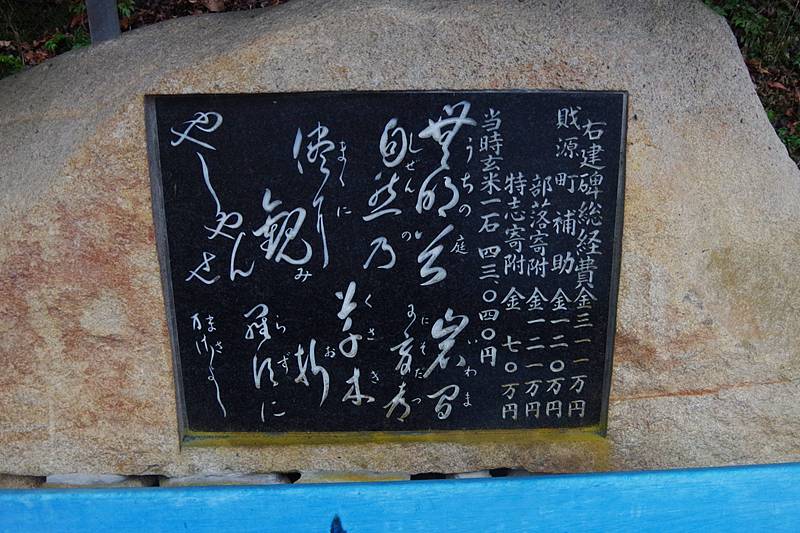 右建碑総経費金三一一万円
財源町補助金一二〇万円
部落寄附金一二一万円
特志寄附金七〇万円
当時玄米一石四三、〇四〇円
うちの庭 いわま
岩間
にそだつ
しぜんの くさき
自然乃 草木
まゝに お
侭 折
み らず
観 に
やしやんせ まさよし